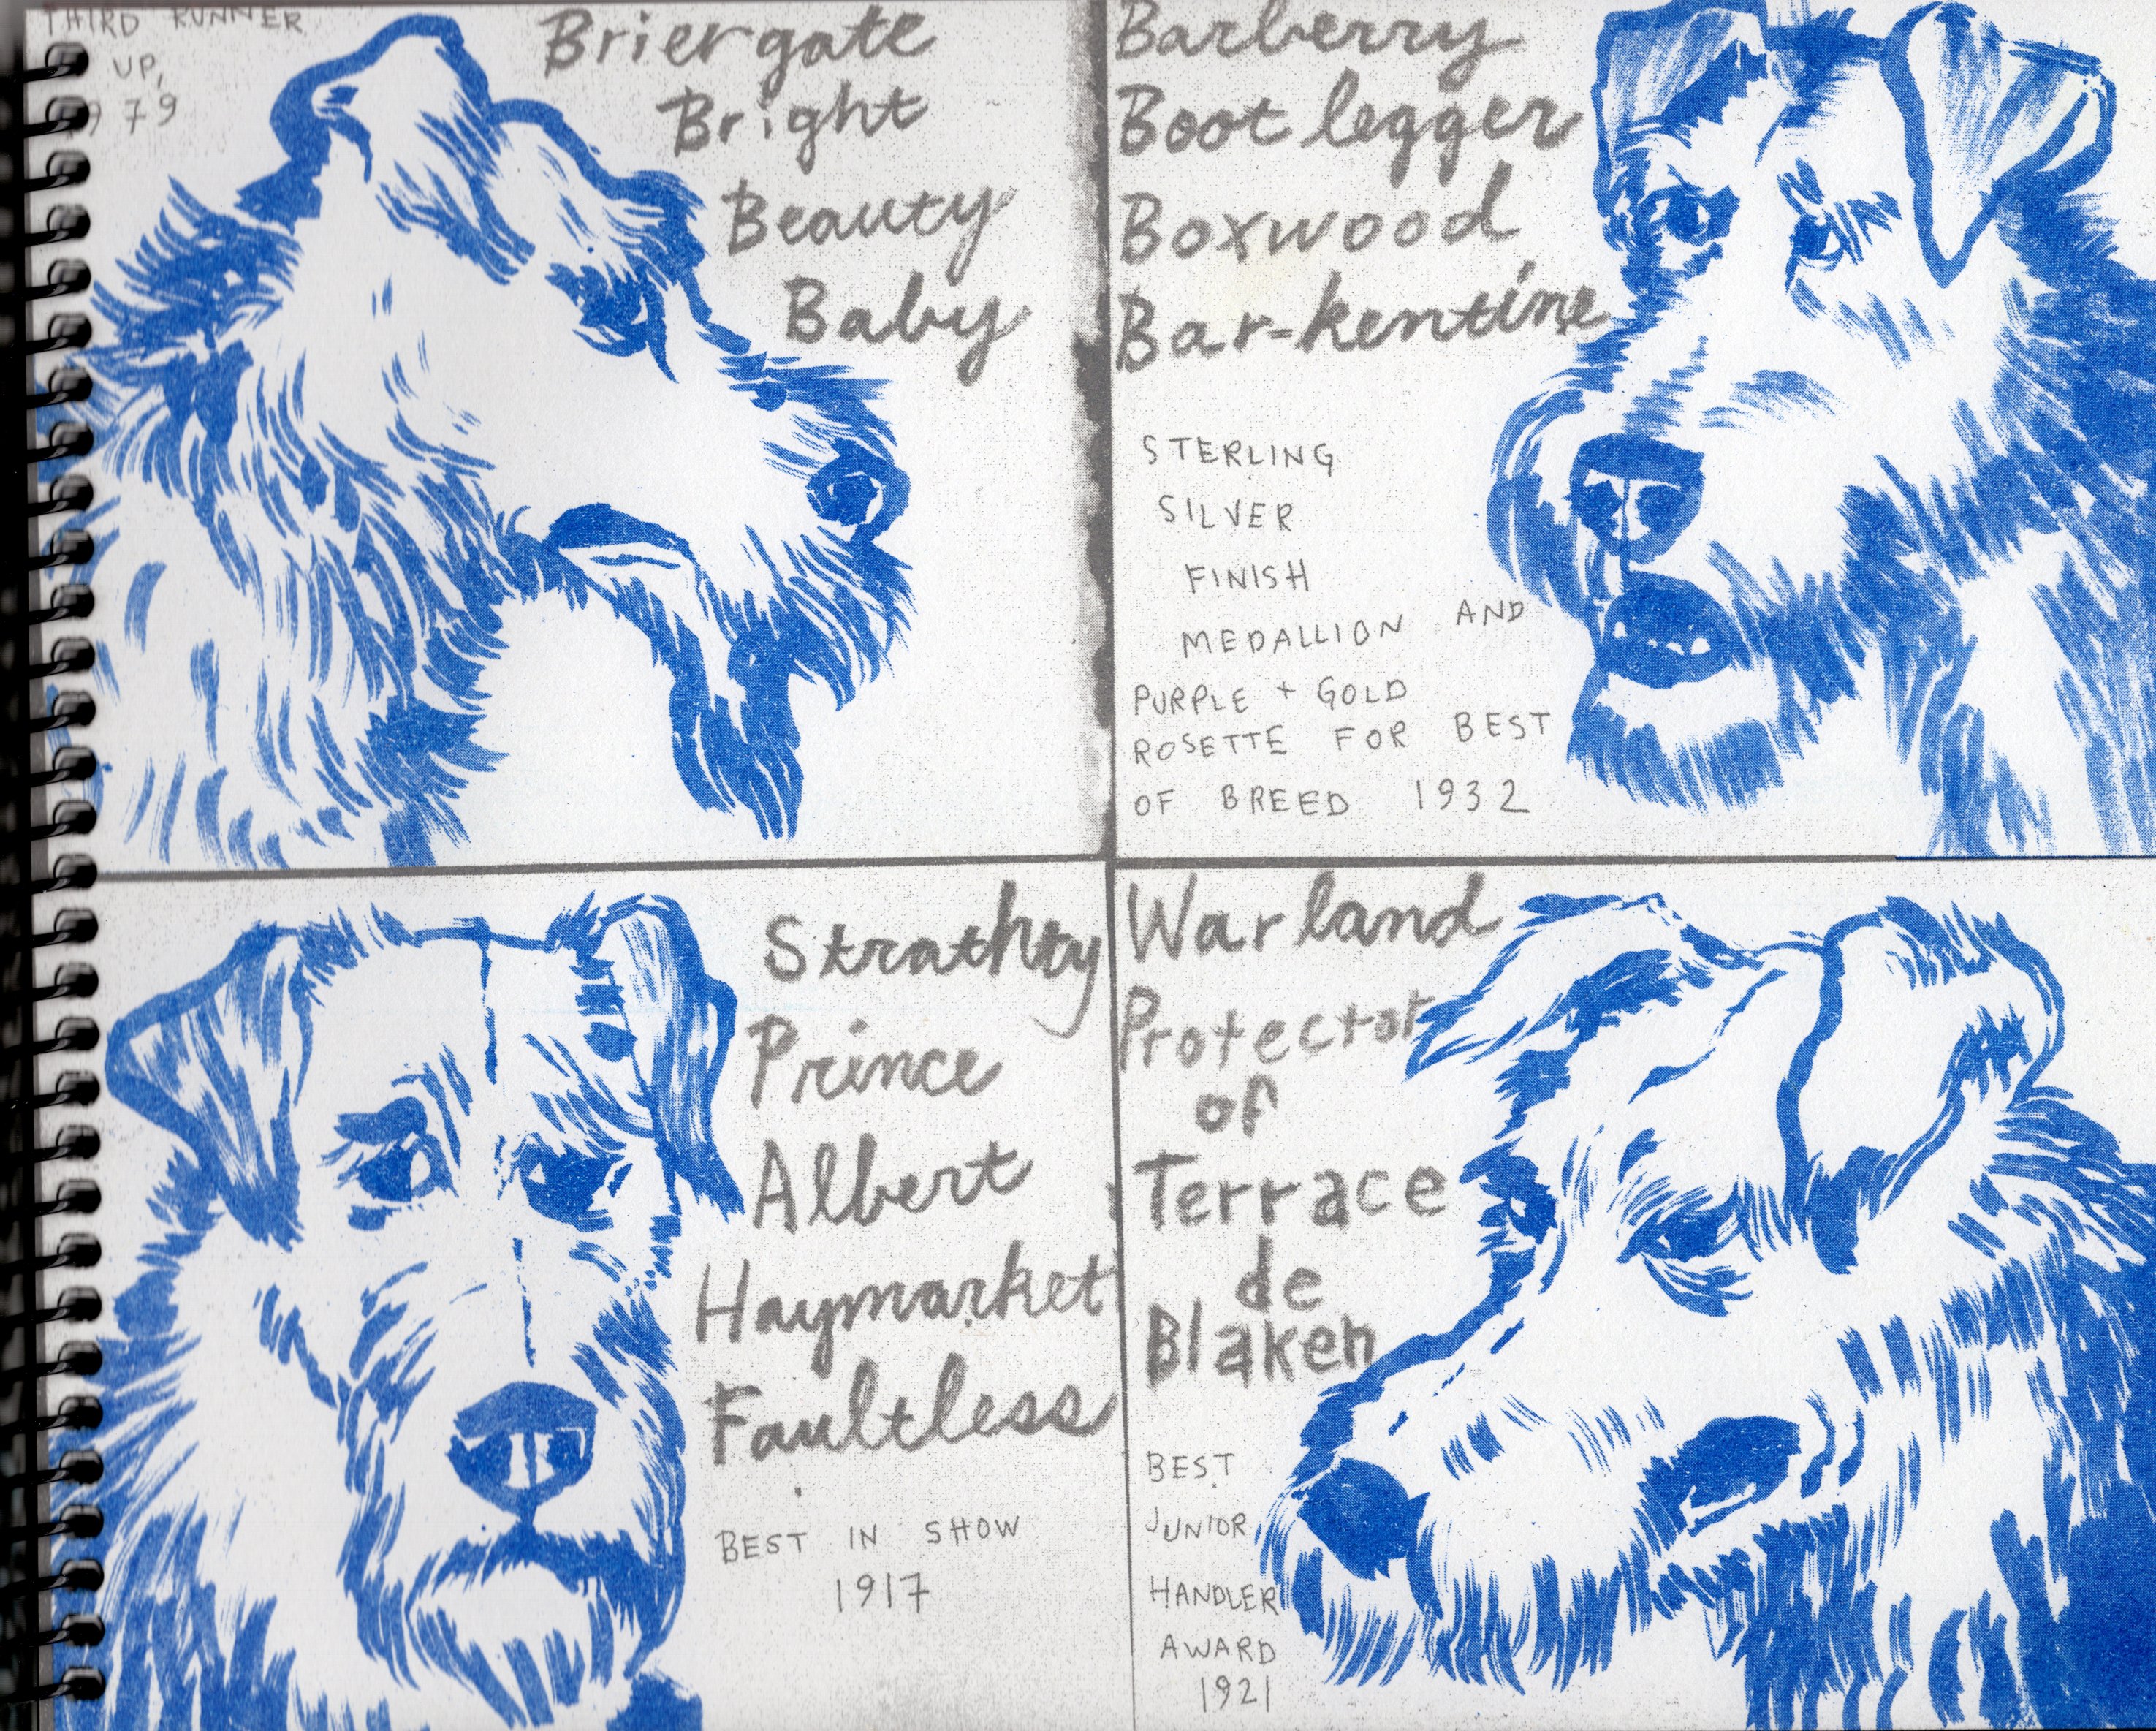 THIRD RUNNER
UP,
1979
Briergate
Bright
Beauty
Baby
Barberry
Bootlegger
Boxwood
Bar-kentine
STERLING
SILVER
FINISH
MEDALLION AND
PURPLE + GOLD
ROSETTE FOR BEST
OF BREED 1932
Strathty
Prince
Albert
Haymarket
Faultless
BEST IN SHOW
1917
Warland
Protector
of
Terrace
de
Blaken
BEST
JUNIOR
HANDLER
AWARD
1921